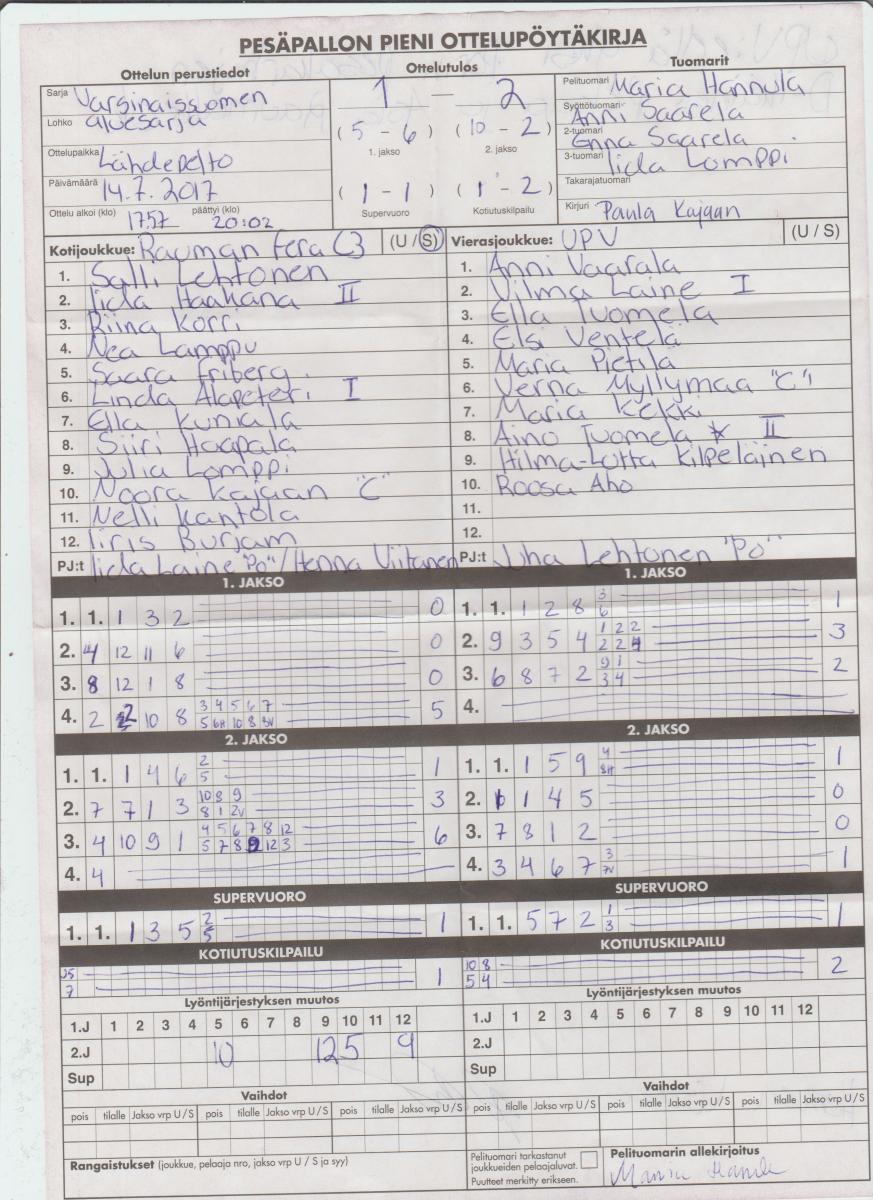 PESÄPALLON PIENI OTTELUPÖYTÄKIRJA
Ottelun perustiedot
Sarja Varsinaissuomen
Lohko aluesarja
Ottelupaikka Lähdepelto
Päivämäärä 14.7.2017
Ottelu alkoi (klo) 17.57 päättyi (klo) 20:02
Ottelutulos
1 – 2
(5 - 6) (10 - 2)
1. jakso 2. jakso
(1 - 1) (1 - 2)
Supervuoro Kotiutuskilpailu
Tuomarit
Pelituomari Maria Hannula
Syöttötuomari Anni Saarela
2-tuomari Enna Saarela
3-tuomari Iida Lomppi
Takarajatuomari
Kirjuri Paula Kajaan
Kotijoukkue: Rauman Fera C3 (U / S)
1. Salli Lehtonen
2. Iida Haakana II
3. Riina Korri
4. Nea Lamppu
5. Saara Friberg
6. Linda Alapeteri I
7. Ella Kuniala
8. Siiri Haapala
9. Julia Lomppi
10. Noora Kajaan "C"
11. Nelli Kantola
12. Iiris Burjam
PJ:t Iida Laine "Po" / Henna Viitanen
Vierasjoukkue: UPV (U / S)
1. Anni Vaarala
2. Vilma Laine I
3. Ella Tuomela
4. Elsi Ventelä
5. Maria Pietilä
6. Verna Myllymaa "C"
7. Maria Kekki
8. Aino Tuomela * II
9. Hilma-Lotta Kilpeläinen
10. Roosa Aho
11.
12.
PJ:t Juha Lehtonen "Po"
1. JAKSO
1. 1. 1 3 2 0
2. 4 12 11 6 0
3. 8 12 1 8 0
4. 2 2 10 8 3 4 5 6 7 5
5 6H 10 8 8V
2. JAKSO
1. 1. 1 4 6 2 1
5
2. 7 7 1 3 10 8 9 3
8 1 2V
3. 4 10 9 1 4 5 6 7 8 12 6
5 7 8 9 12 3
4. 4
SUPERVUORO
1. 1. 1 3 5 2 1
5
KOTIUTUSKILPAILU
1
7
1. JAKSO
1. 1. 1 2 8 3 1
6
2. 9 3 5 4 1 2 2 3
2 2 4
3. 6 8 7 2 9 1 2
3 4
4.
2. JAKSO
1. 1. 1 5 9 4 1
8H
2. 1 1 4 5 0
3. 7 8 1 2 0
4. 3 4 6 7 3 1
7V
SUPERVUORO
1. 1. 5 7 2 1 1
3
KOTIUTUSKILPAILU
10 8 2
5 4
Lyöntijärjestyksen muutos
1.J 1 2 3 4 5 6 7 8 9 10 11 12
2.J 10 12 5 9
Sup
Lyöntijärjestyksen muutos
1.J 1 2 3 4 5 6 7 8 9 10 11 12
2.J
Sup
Vaihdot
pois tilalle Jakso vrp U / S pois tilalle Jakso vrp U / S pois tilalle Jakso vrp U / S
Vaihdot
pois tilalle Jakso vrp U / S pois tilalle Jakso vrp U / S pois tilalle Jakso vrp U / S
Rangaistukset (joukkue, pelaaja nro, jakso vrp U / S ja syy)
Pelituomari tarkastanut
joukkueiden pelaajaluvat.
Puutteet merkitty erikseen.
Pelituomarin allekirjoitus